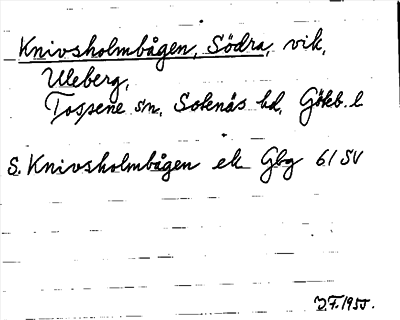 Knivsholmbågen, Södra, vik,
Uleberg,
Tossene sn, Sotenäs hd, Göteb. l
S. Knivsholmbågen ek Gbg 61 SV
J.F. 1955.